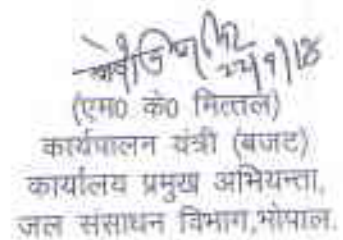 22/9/18
(एम0 के0 मित्तल)
कार्यपालन यंत्री (बजट)
कार्यालय प्रमुख अभियन्ता,
जल संसाधन विभाग,भोपाल.